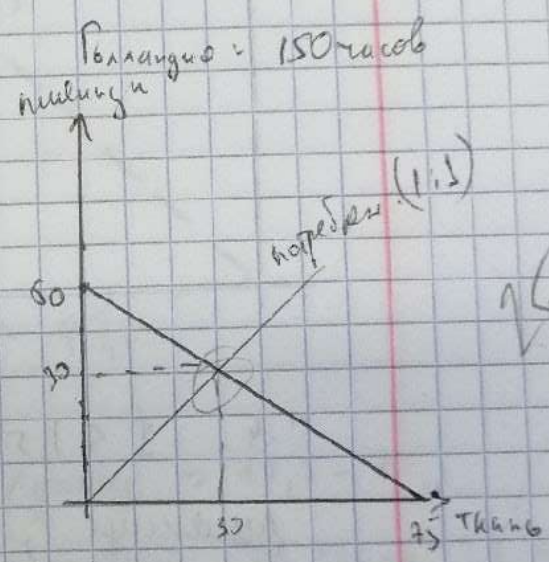 Голландия: 150 часов
пшеница
потребл. (1:1)
50
30
30
75 ткань